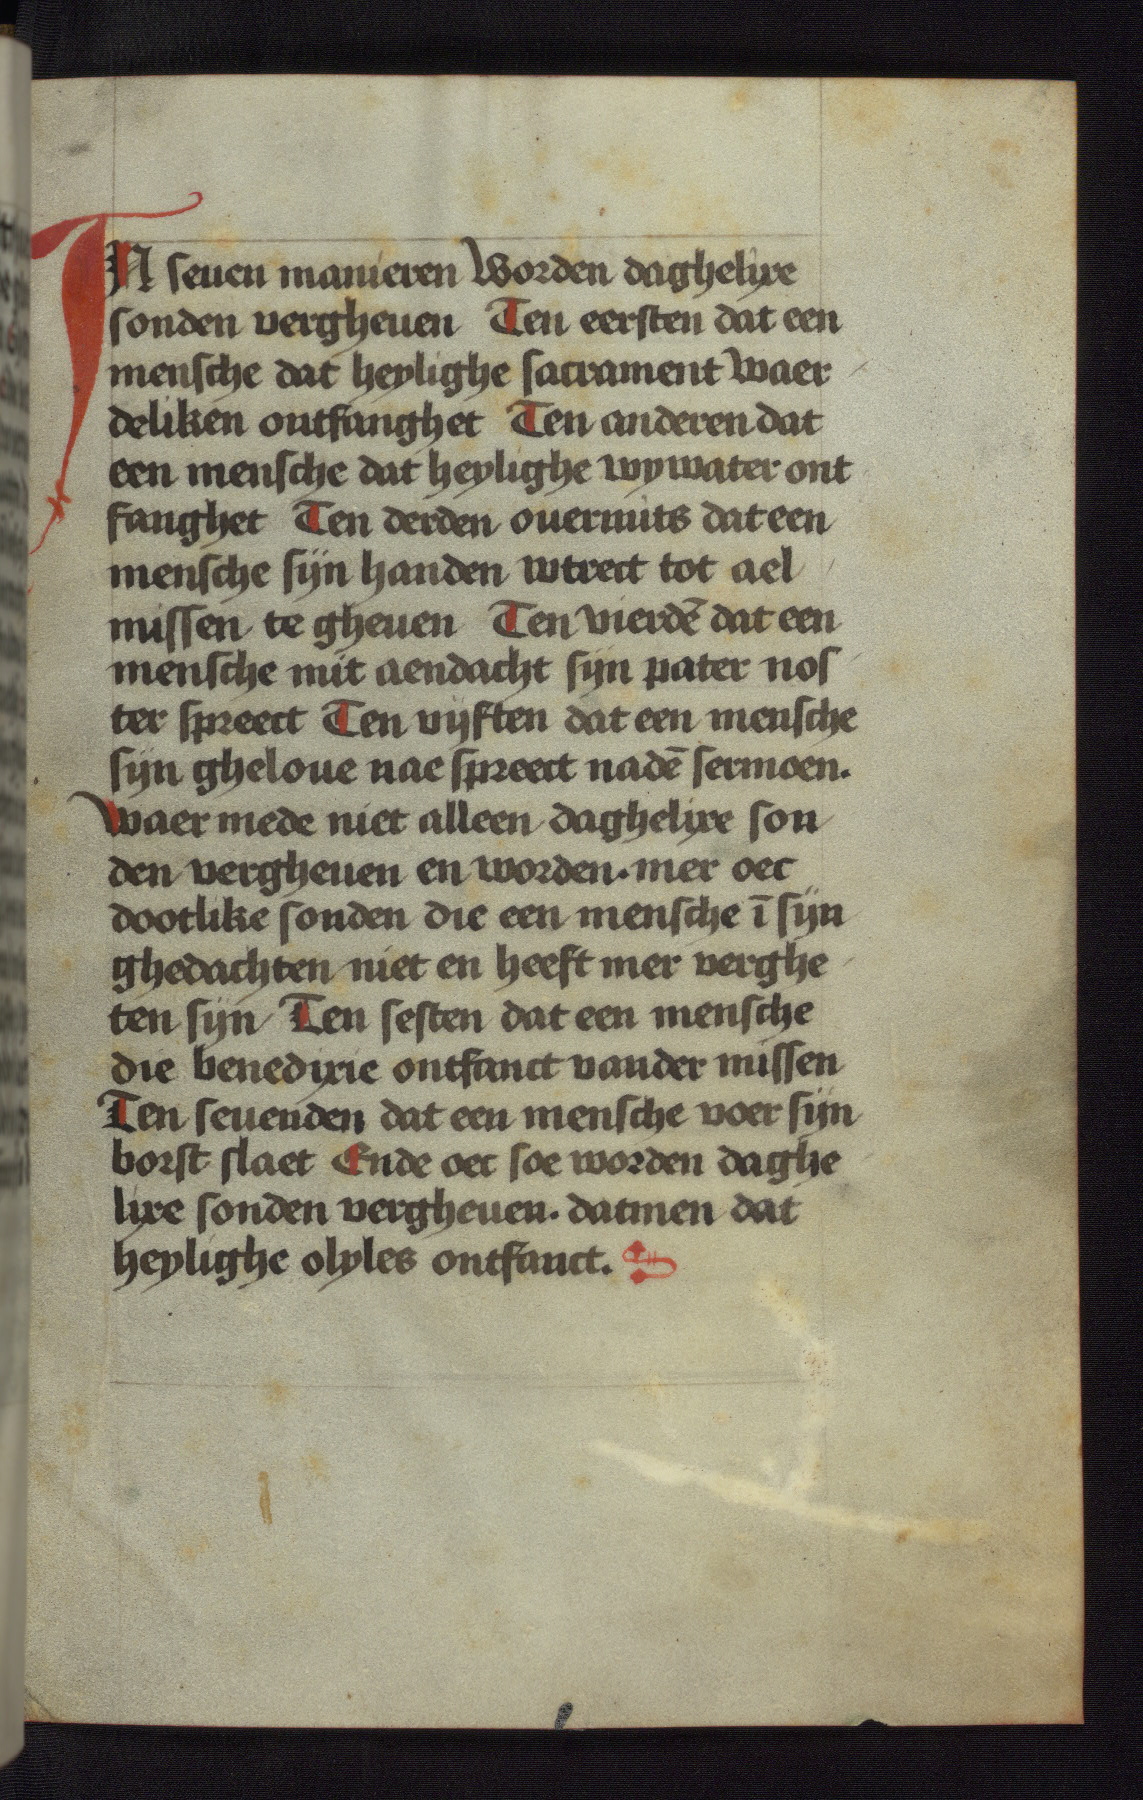 IN seuen manieren worden daghelixe
sonden vergheuen Ten eersten dat een
mensche dat heylighe sacrament waer
deliken ontfanghet Ten anderen dat
een mensche dat heylighe wywater ont
fanghet Ten derden ouermits dat een
mensche sijn handen wtrect tot ael
missen te gheuen Ten vierdē dat een
mensche mit aendacht sijn pater nos
ter spreect Ten vijften dat een mensche
sijn gheloue nae spreect nadē sermoen.
Waer mede niet alleen daghelixe son
den vergheuen en worden. mer oec
dootlike sonden die een mensche ī sijn
ghedachten niet en heeft mer verghe
ten sijn Ten sesten dat een mensche
die benedixie ontfanct vander missen
Ten seuenden dat een mensche voer sijn
borst slaet Ende oec soe worden daghe
lixe sonden vergheuen. datmen dat
heylighe olyles ontfanct.